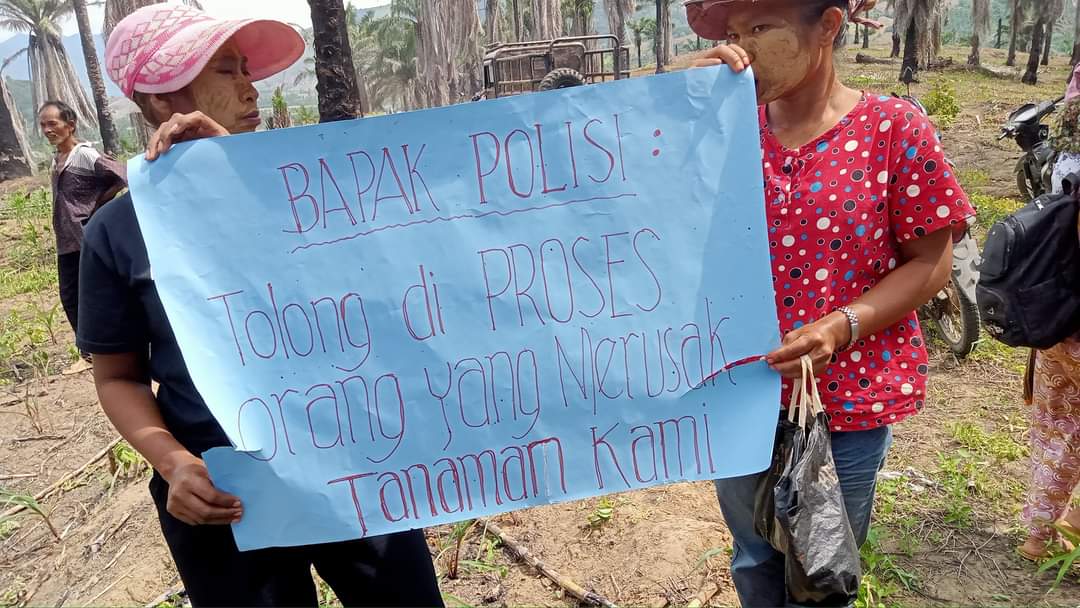 BAPAK POLISI :
Tolong di PROSES
orang yang Merusak
Tanamam Kami